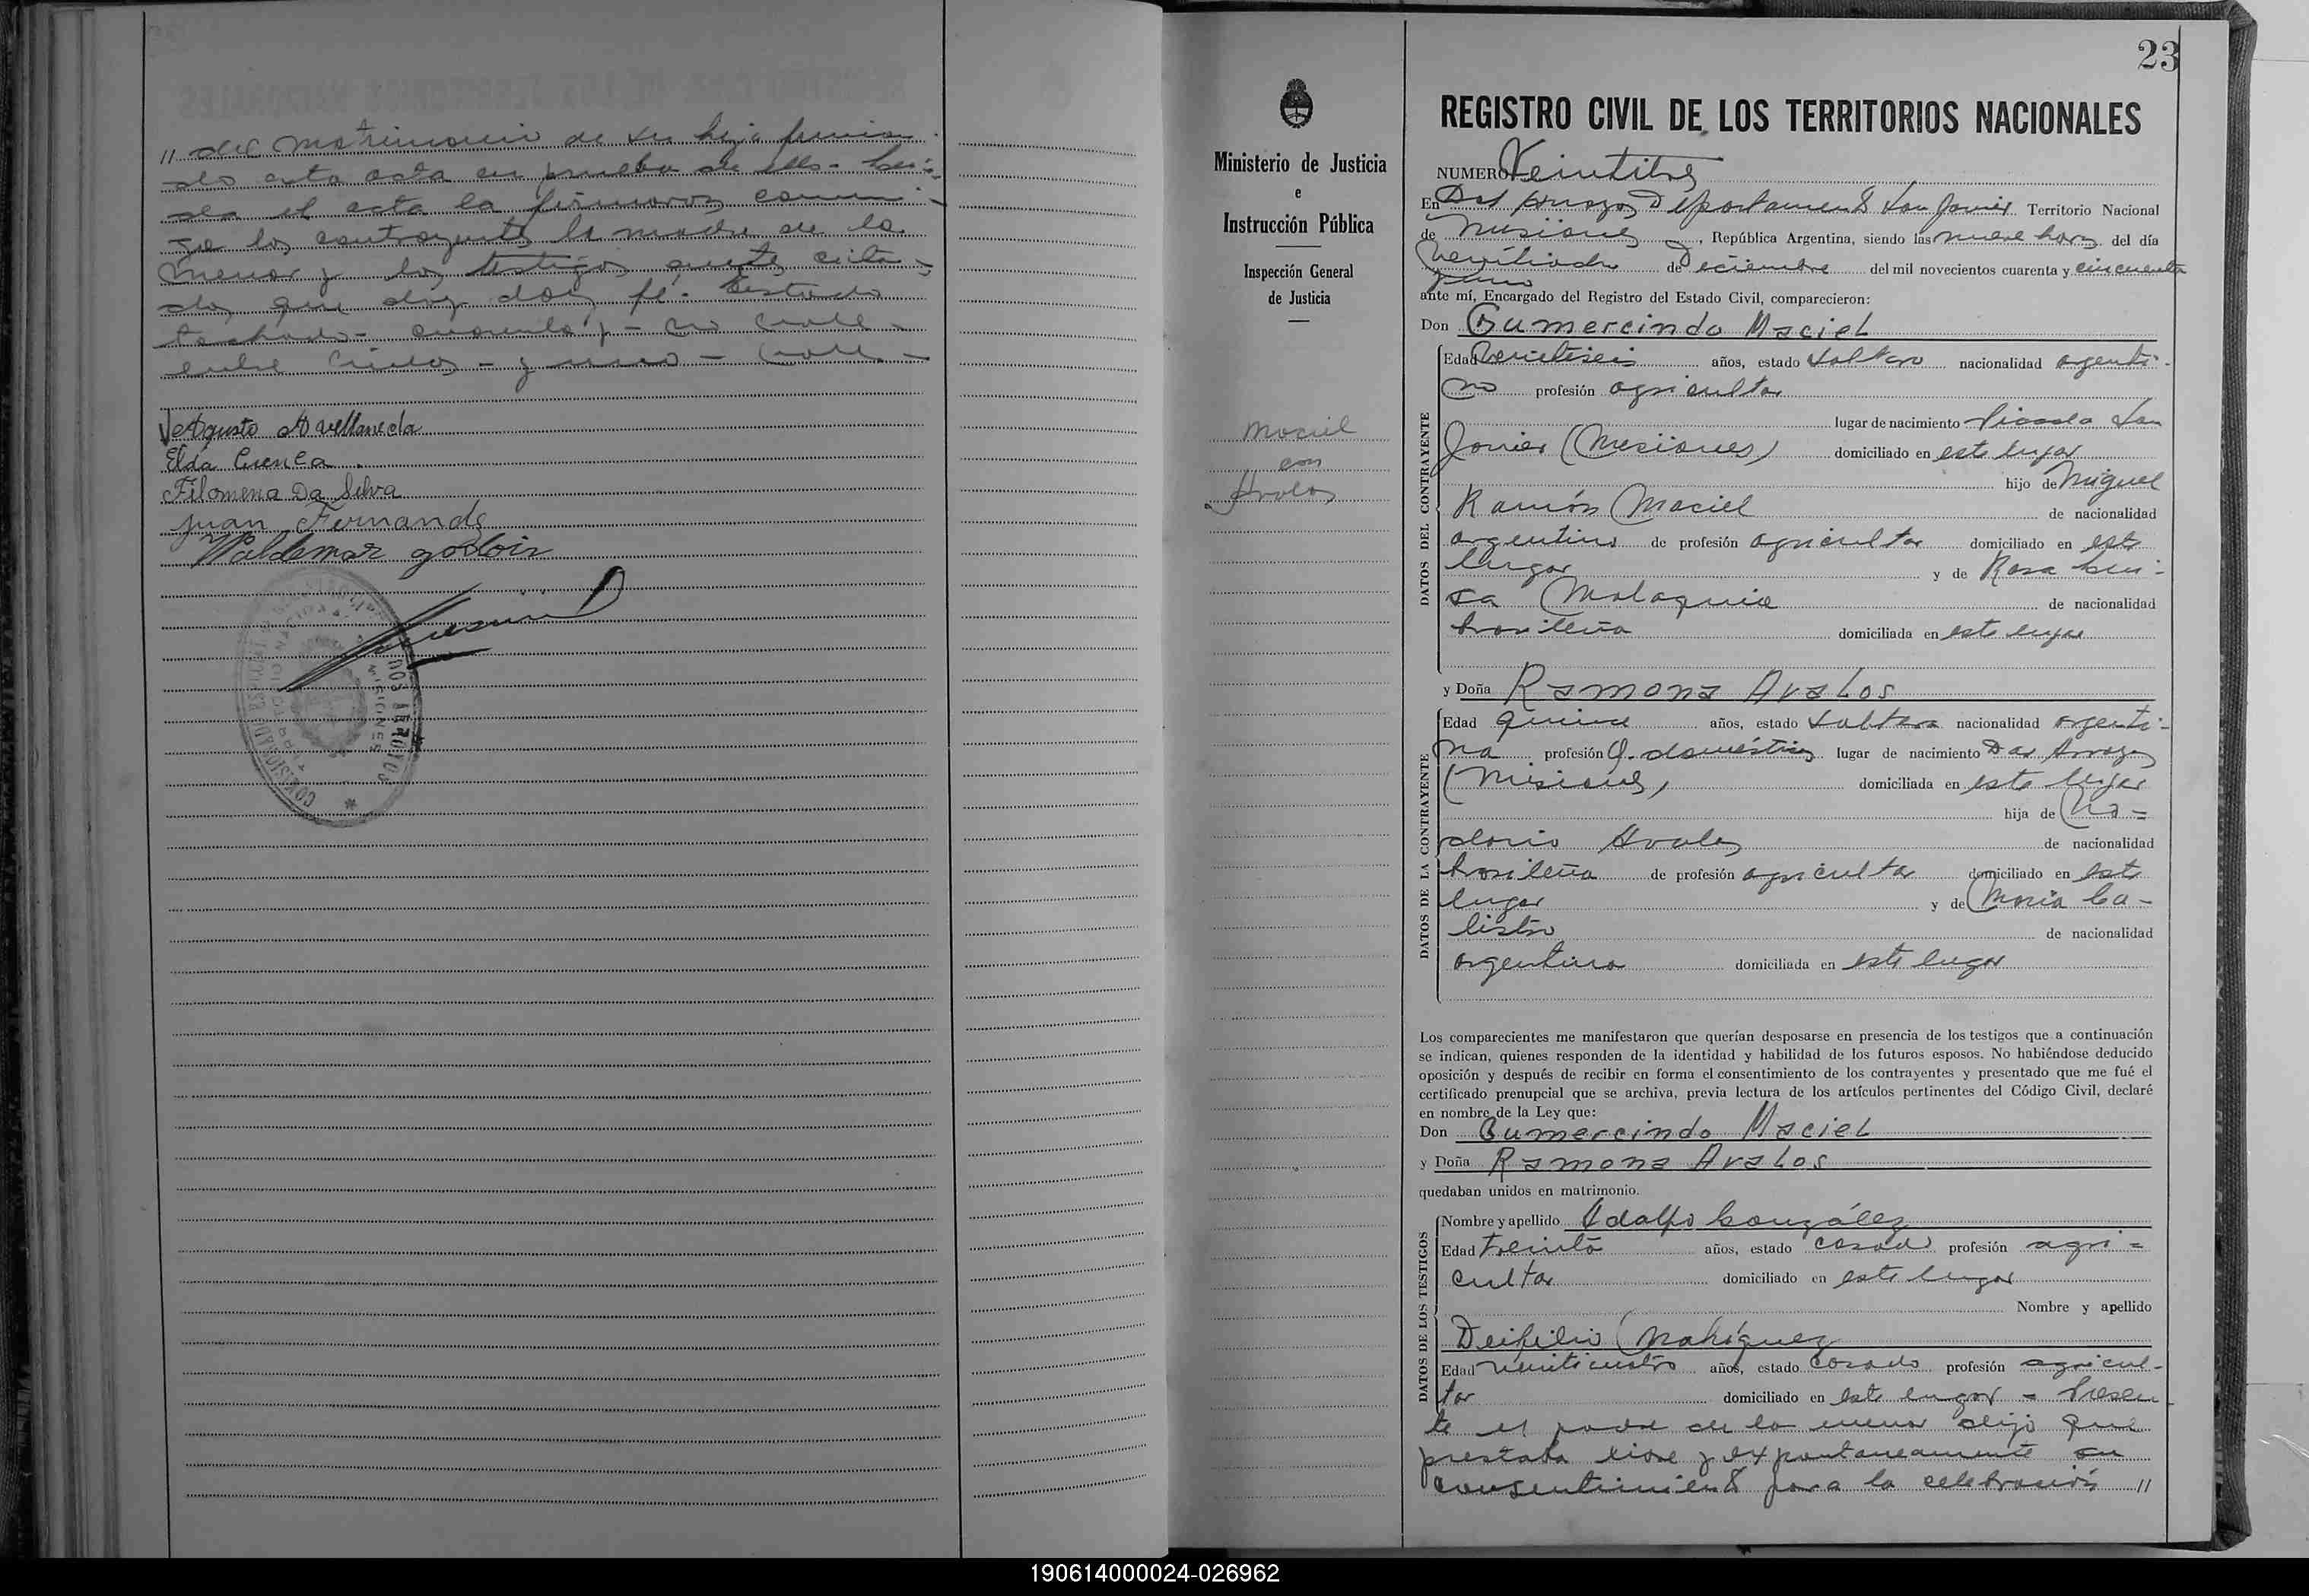 " del matrimonio de su hija firman
do esta acta en prueba de ello - Leí-
da el acta la firmaron conmi-
go los contrayentes la madre de la
menor y los testigos antes cita-
dos que doy fé. Testado
tachado - cuarenta y - no vale -
entre lineas - y uno - vale -
Agusto Avellaneda
Elda Cuenca.
Filomena Da Silva
Juan Fernande
Valdemar godoir
DOS ARROYOS
MISIONES
23
Ministerio de Justicia
e
Instrucción Pública
Inspección General
de Justicia
Maciel
con
Avalos
REGISTRO CIVIL DE LOS TERRITORIOS NACIONALES
NUMERO Veintitres
En Dos Arroyos Departamento San Javier Territorio Nacional
de Misiones, República Argentina, siendo las nueve horas del día
de Deciembre del mil novecientos cuarenta y cincuenta
y uno
ante mí, Encargado del Registro del Estado Civil, comparecieron:
Don Gumercindo Maciel
DATOS DEL CONTRAYENTE
Edad Veintiseis años, estado soltero nacionalidad argenti-
no profesión agricultor
lugar de nacimiento Picada San
Javier (Misiones) domiciliado en este lugar
hijo de Miguel
Ramón Maciel de nacionalidad
argentino de profesión agricultor domiciliado en este
lugar y de Rosa Lui-
sa Malaquia de nacionalidad
brasileña domiciliada en este lugar
y Doña Ramona Avalos
DATOS DE LA CONTRAYENTE
Edad quince años, estado soltera nacionalidad argenti-
na profesión Q. domésticos lugar de nacimiento Dos Arroyos
(Misiones) domiciliada en este lugar
hija de Na-
dorio Avalos de nacionalidad
brasileña de profesión agricultor domiciliado en este
lugar y de Maria Ca-
listro de nacionalidad
argentina domiciliada en este lugar
Los comparecientes me manifestaron que querían desposarse en presencia de los testigos que a continuación
se indican, quienes responden de la identidad y habilidad de los futuros esposos. No habiéndose deducido
oposición y después de recibir en forma el consentimiento de los contrayentes y presentado que me fué el
certificado prenupcial que se archiva, previa lectura de los artículos pertinentes del Código Civil, declaré
en nombre de la Ley que:
Don Gumercindo Maciel
y Doña Ramona Avalos
quedaban unidos en matrimonio.
DATOS DE LOS TESTIGOS
Nombre y apellido Adolfo González
Edad treinta años, estado casado profesión agri-
cultor domiciliado en este lugar
Nombre y apellido
Deifilio Mahíquez
Edad veinticuatro años, estado casado profesión agricul-
tor domiciliado en este lugar - Presen
te el padre de la menor dijo que
prestaba libre y expontaneamente su
consentimiento para la celebración "
190614000024-026962